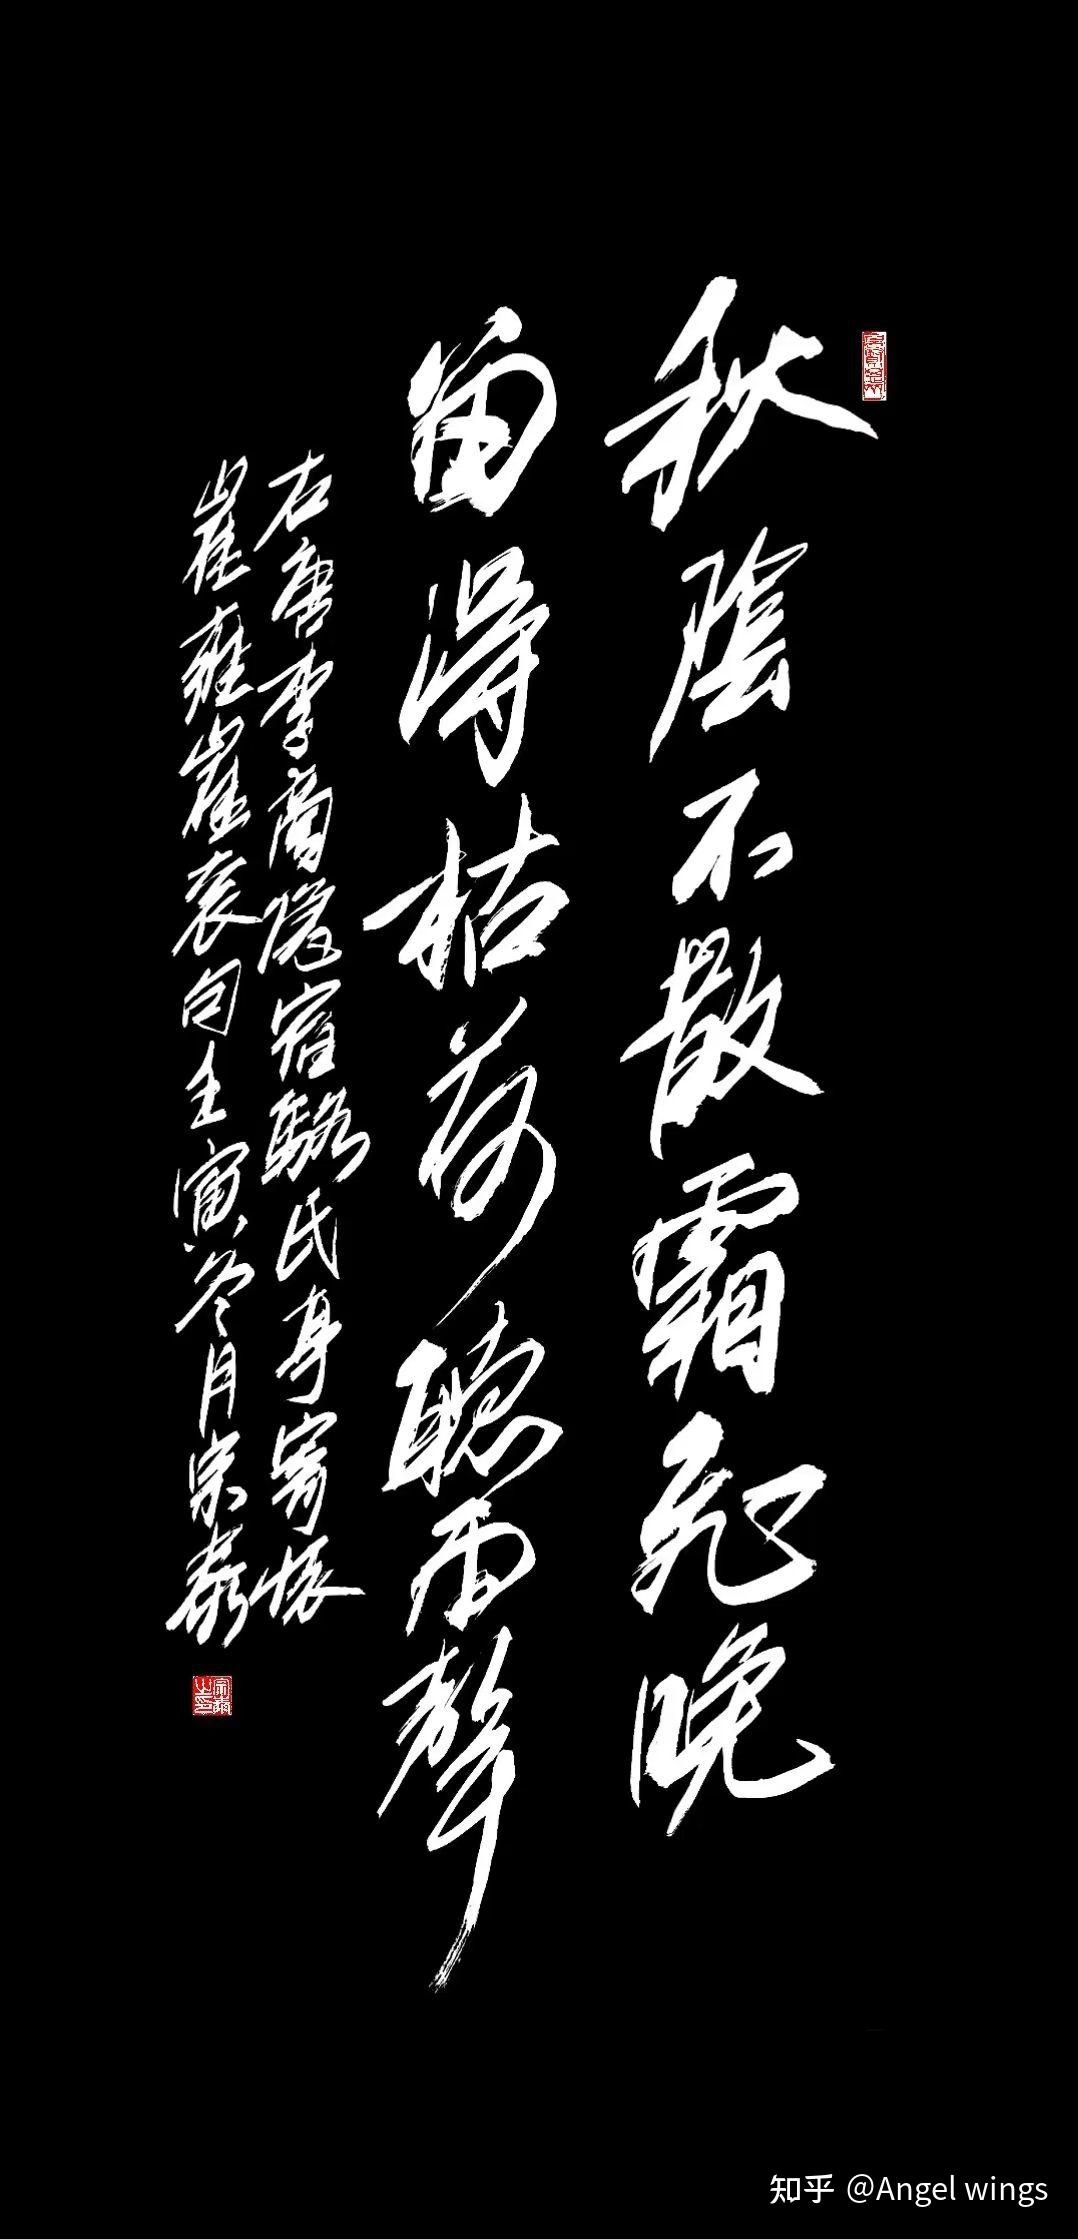 秋陰不散霜飛晚
留得枯荷聽雨聲
右唐李商隱宿駱氏亭寄懷
崔雍崔袞句壬寅冬月宗泰
知乎 @Angel wings